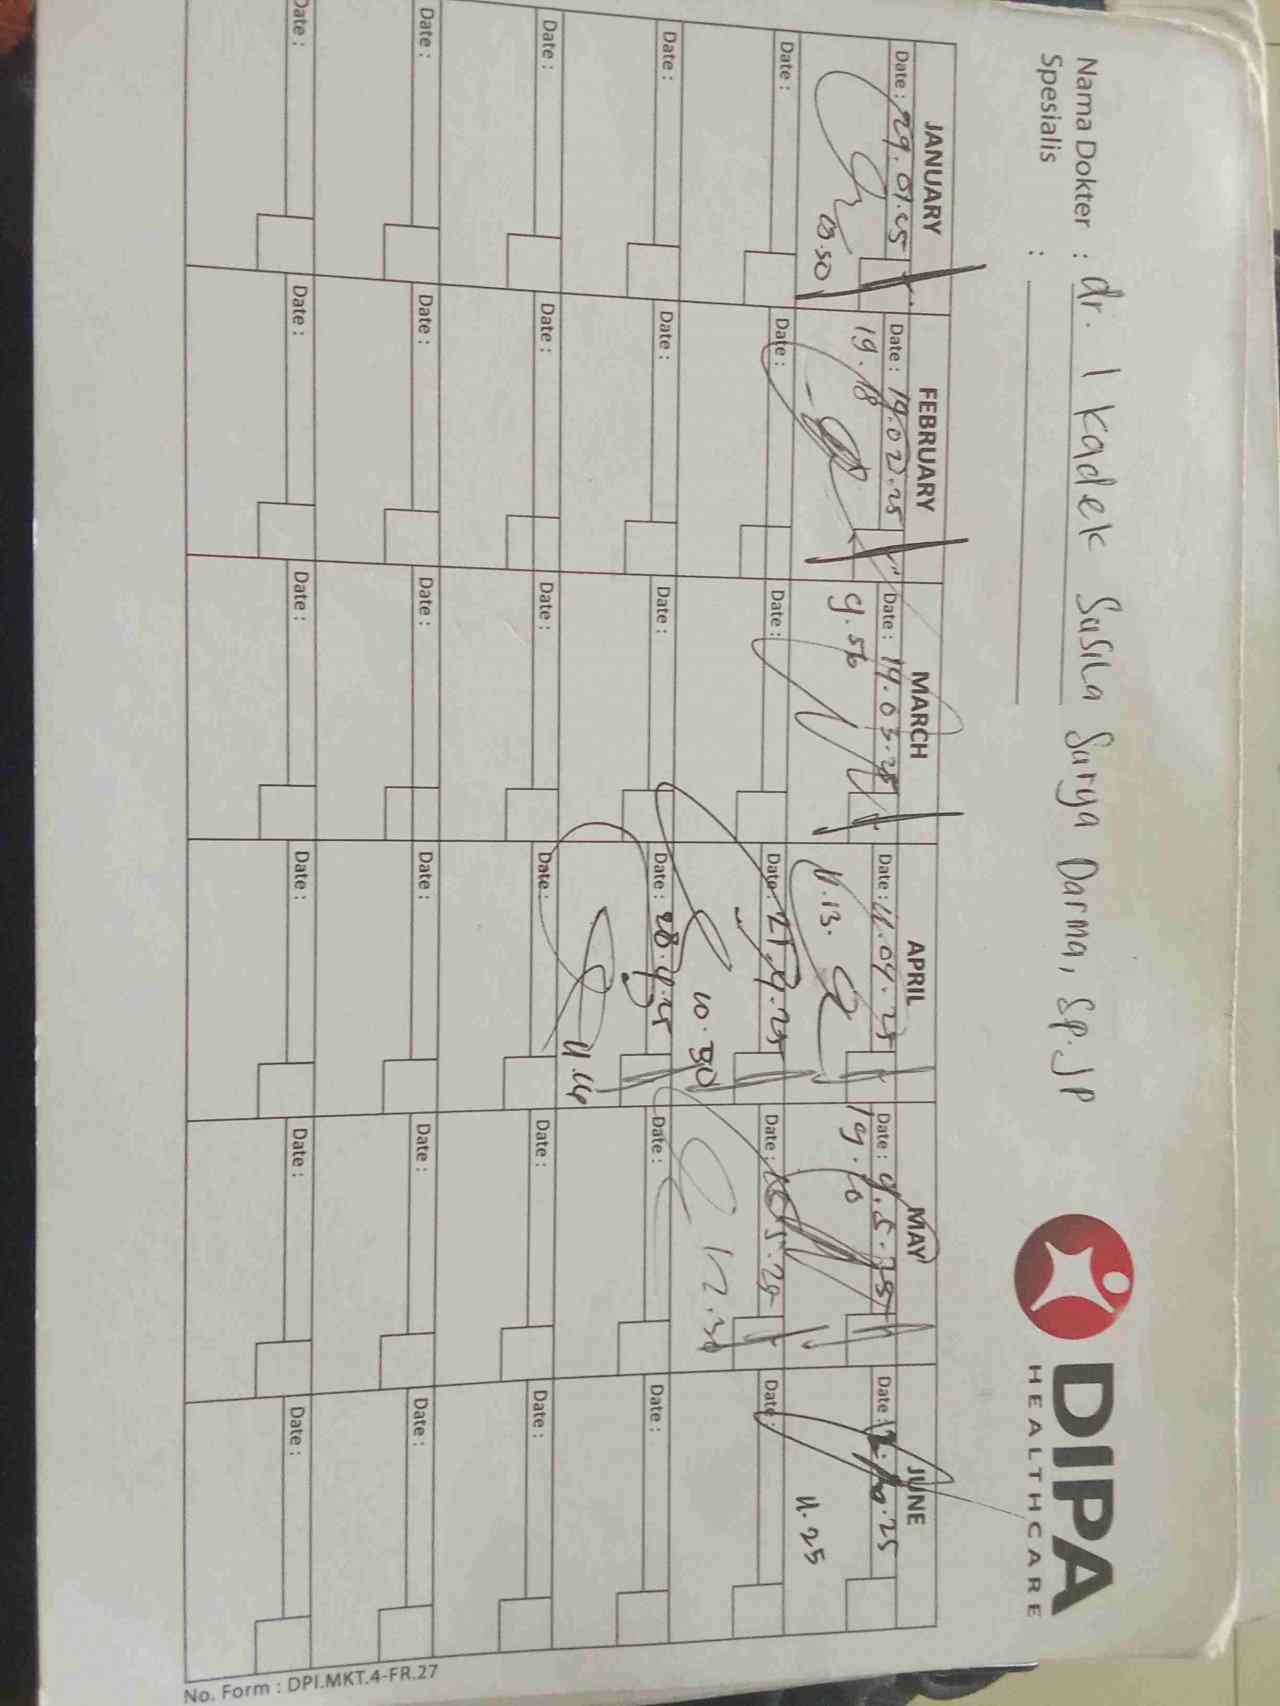 Nama Dokter : dr. I Kadek Susila Surya Darma, Sp.JP
Spesialis :
DIPA
HEALTHCARE
JANUARY FEBRUARY MARCH APRIL MAY JUNE
Date : 29.01.25 Date : 19.02.25 Date : 19.03.25 Date : 11.04.25 Date : 9.5.25 Date : 25
19.18 9.56 11.13. 19.10
11.25
Date : Date : Date : Date : 21.4.25 Date : 5.25 Date :
10.30 12.30
Date : Date : Date : Date : 28.4.25 Date : Date :
Date : Date : Date : Date : Date : Date :
Date : Date : Date : Date : Date : Date :
Date : Date : Date : Date : Date : Date :
No. Form : DPI.MKT.4-FR.27